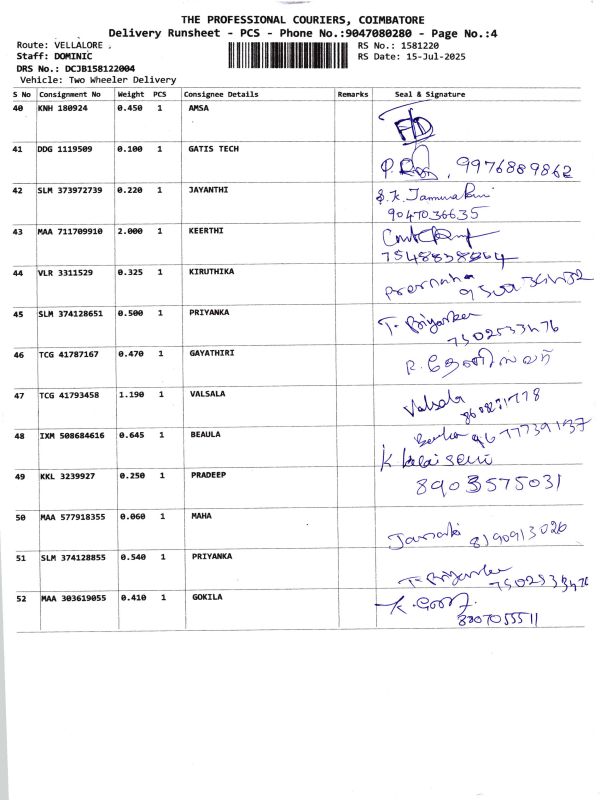 THE PROFESSIONAL COURIERS, COIMBATORE
Delivery Runsheet - PCS - Phone No.:9047080280 - Page No.:4
Route: VELLALORE . RS No.: 1581220
Staff: DOMINIC RS Date: 15-Jul-2025
DRS No.: DCJB158122004
Vehicle: Two Wheeler Delivery
S No Consignment No Weight PCS Consignee Details Remarks Seal & Signature
40 KNH 180924 0.450 1 AMSA
41 DDG 1119509 0.100 1 GATIS TECH
9976889862
42 SLM 373972739 0.220 1 JAYANTHI
9047036635
43 MAA 711709910 2.000 1 KEERTHI
7548838864
44 VLR 3311529 0.325 1 KIRUTHIKA
45 SLM 374128651 0.500 1 PRIYANKA T- Priyanka
7502533476
46 TCG 41787167 0.470 1 GAYATHIRI
47 TCG 41793458 1.190 1 VALSALA Valsala
48 IXM 508684616 0.645 1 BEAULA Beula
K kalaiselvi
49 KKL 3239927 0.250 1 PRADEEP 8903575031
50 MAA 577918355 0.060 1 MAHA
Janaki 8190913026
51 SLM 374128855 0.540 1 PRIYANKA
T- Priyanka 7502533476
52 MAA 303619055 0.410 1 GOKILA
3807055511